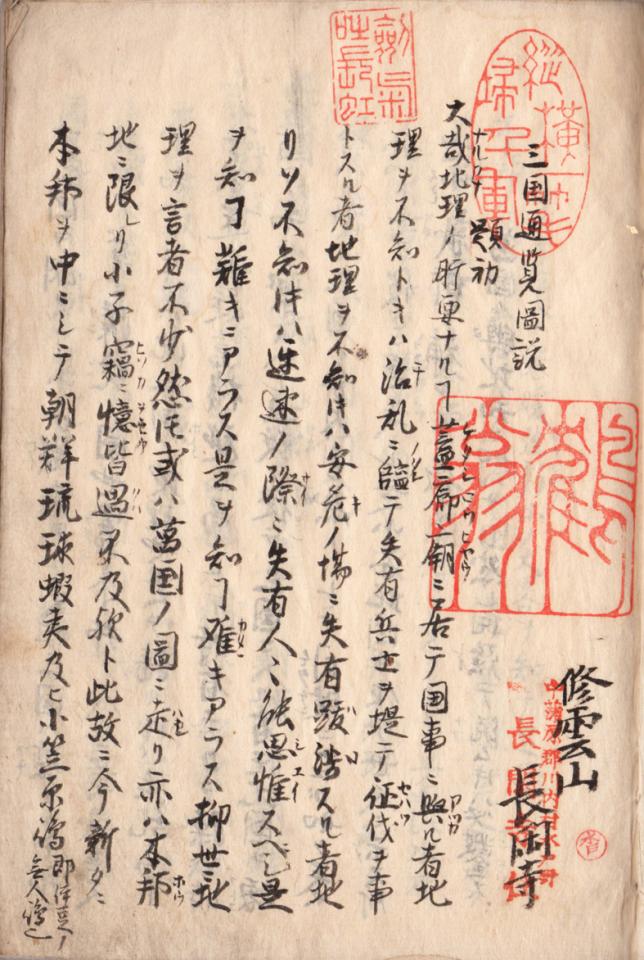 三国通覧圖説
題初
大哉地理ノ肝要ナルヿ蓋廊廟ニ居テ国事ニ與ル者地
理ヲ不知トキハ治乱ニ臨テ失有兵士ヲ提テ征伐ヲ事
トスル者地理ヲ不知𪜈ハ安危ノ場ニ失有跋渉スル者地
リヲ不知𪜈ハ遅速ノ際ニ失有人々能思惟スベシ是
ヲ知ヿ難キニアラス是ヲ知ヿ难キアラス抑世ニ地
理ヲ言者不少然𪜈或ハ萬国ノ圖ニ走リ亦ハ本邦
地ニ限レリ小子竊ニ憶皆過不及歟ト此故ニ今新タニ
本邦ヲ中ニシテ朝鮮琉球蝦夷及ヒ小笠原嶋即伊豆ノ無人嶋也
修雲山
長閑寺
劔氣吐長虹